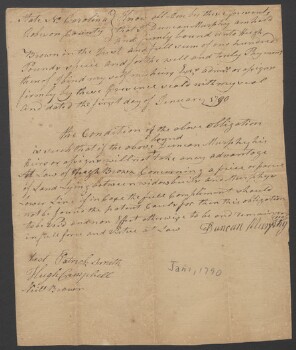 State No Carolina } Know all Men by these presents
Robeson County } that I Duncan Murphy am held
and firmly bound unto Hugh
Brown in the Just and full sum of one hundred
Pounds specie and for the well and truly Payment
thereof I bind my
firmly by these presence seals with my seal
and dated the first day of January 1790
the Condition of the above obligation
is such that if the above bound Duncan Murphy his
heirs or assigns will not take any advantage
At Law of Hugh Brown Concerning a piece or parcel
of Land lying between
line if in case the full Compliment should
not be found the patent Calls for then this obligation
to be void and non Effect otherwise to be and remain
in full force and Virtue in Law
Duncan Murphy
Test Patrick Smith
Hugh Campbell
Neill Brown
Jan 1, 1790